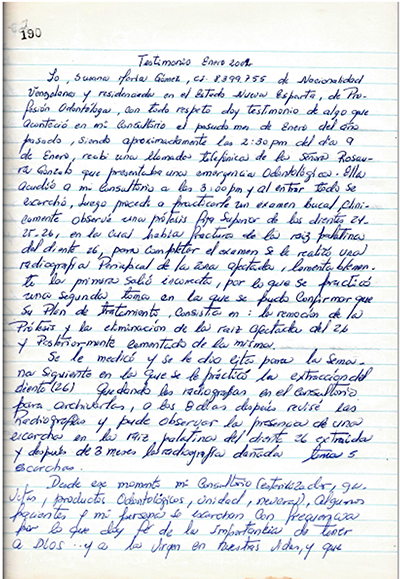 190
Testimonio Enero 2002
Yo, Susana María Gómez, CI 8.399.755 de Nacionalidad
Venezolana y residenciada en el Estado Nueva Esparta, de Pro-
fesión Odontólogo, con todo respeto doy testimonio de algo que
aconteció en mi Consultorio el pasado mes de Enero del año
pasado, siendo aproximadamente las 2:30 pm del día 9
de Enero, recibí una llamada telefónica de la Señora Rosau-
ra que presentaba una emergencia Odontológica. Ella
acudió a mi consultorio a las 3:00 pm y al entrar todo se
escarchó, luego procedí a practicarle un examen bucal, clíni-
camente observé una prótesis fija Superior de los dientes 24-
25-26, en la cual había fractura de la raíz palatina
del diente 26, para completar el examen se le realizó una
radiografía Periapical de la área afectada, lamentablemen-
te la primera salió incorrecta, por lo que se practicó
una segunda toma en la que se pudo Confirmar que
su Plan de tratamiento, Consistía en: la remoción de la
Prótesis y la eliminación de la raíz afectada del 26
y Posteriormente cementado de la misma.
Se le medicó y se le dio cita para la Sema-
na Siguiente en la que se le practicó la extracción del
diente (26) Quedando las radiografías en el Consultorio
para archivarlas, a los 8 días después revisé las
Radiografías y pude observar la presencia de una
escarcha en la raíz palatina del diente 26 extraída
y después de 3 meses la radiografía dañada tenía 5
escarchas.
Desde ese momento mi Consultorio (esterilizador, ga-
vetas, productos Odontológicos, unidad, nevera), Algunos
pacientes y mi persona se escarchan Con frecuencia
por lo que doy fé de la Importancia de tener
a DIOS y a la Virgen en Nuestras vidas, y que